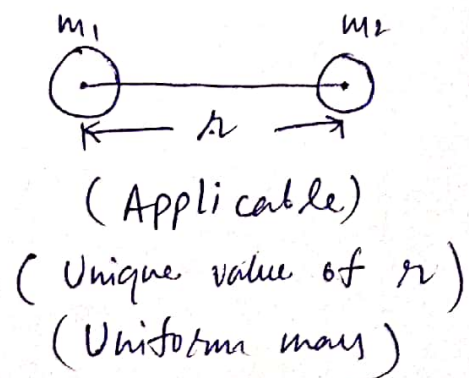 m₁ m₂
r
(Applicable)
(Unique value of r)
(Uniform mass)